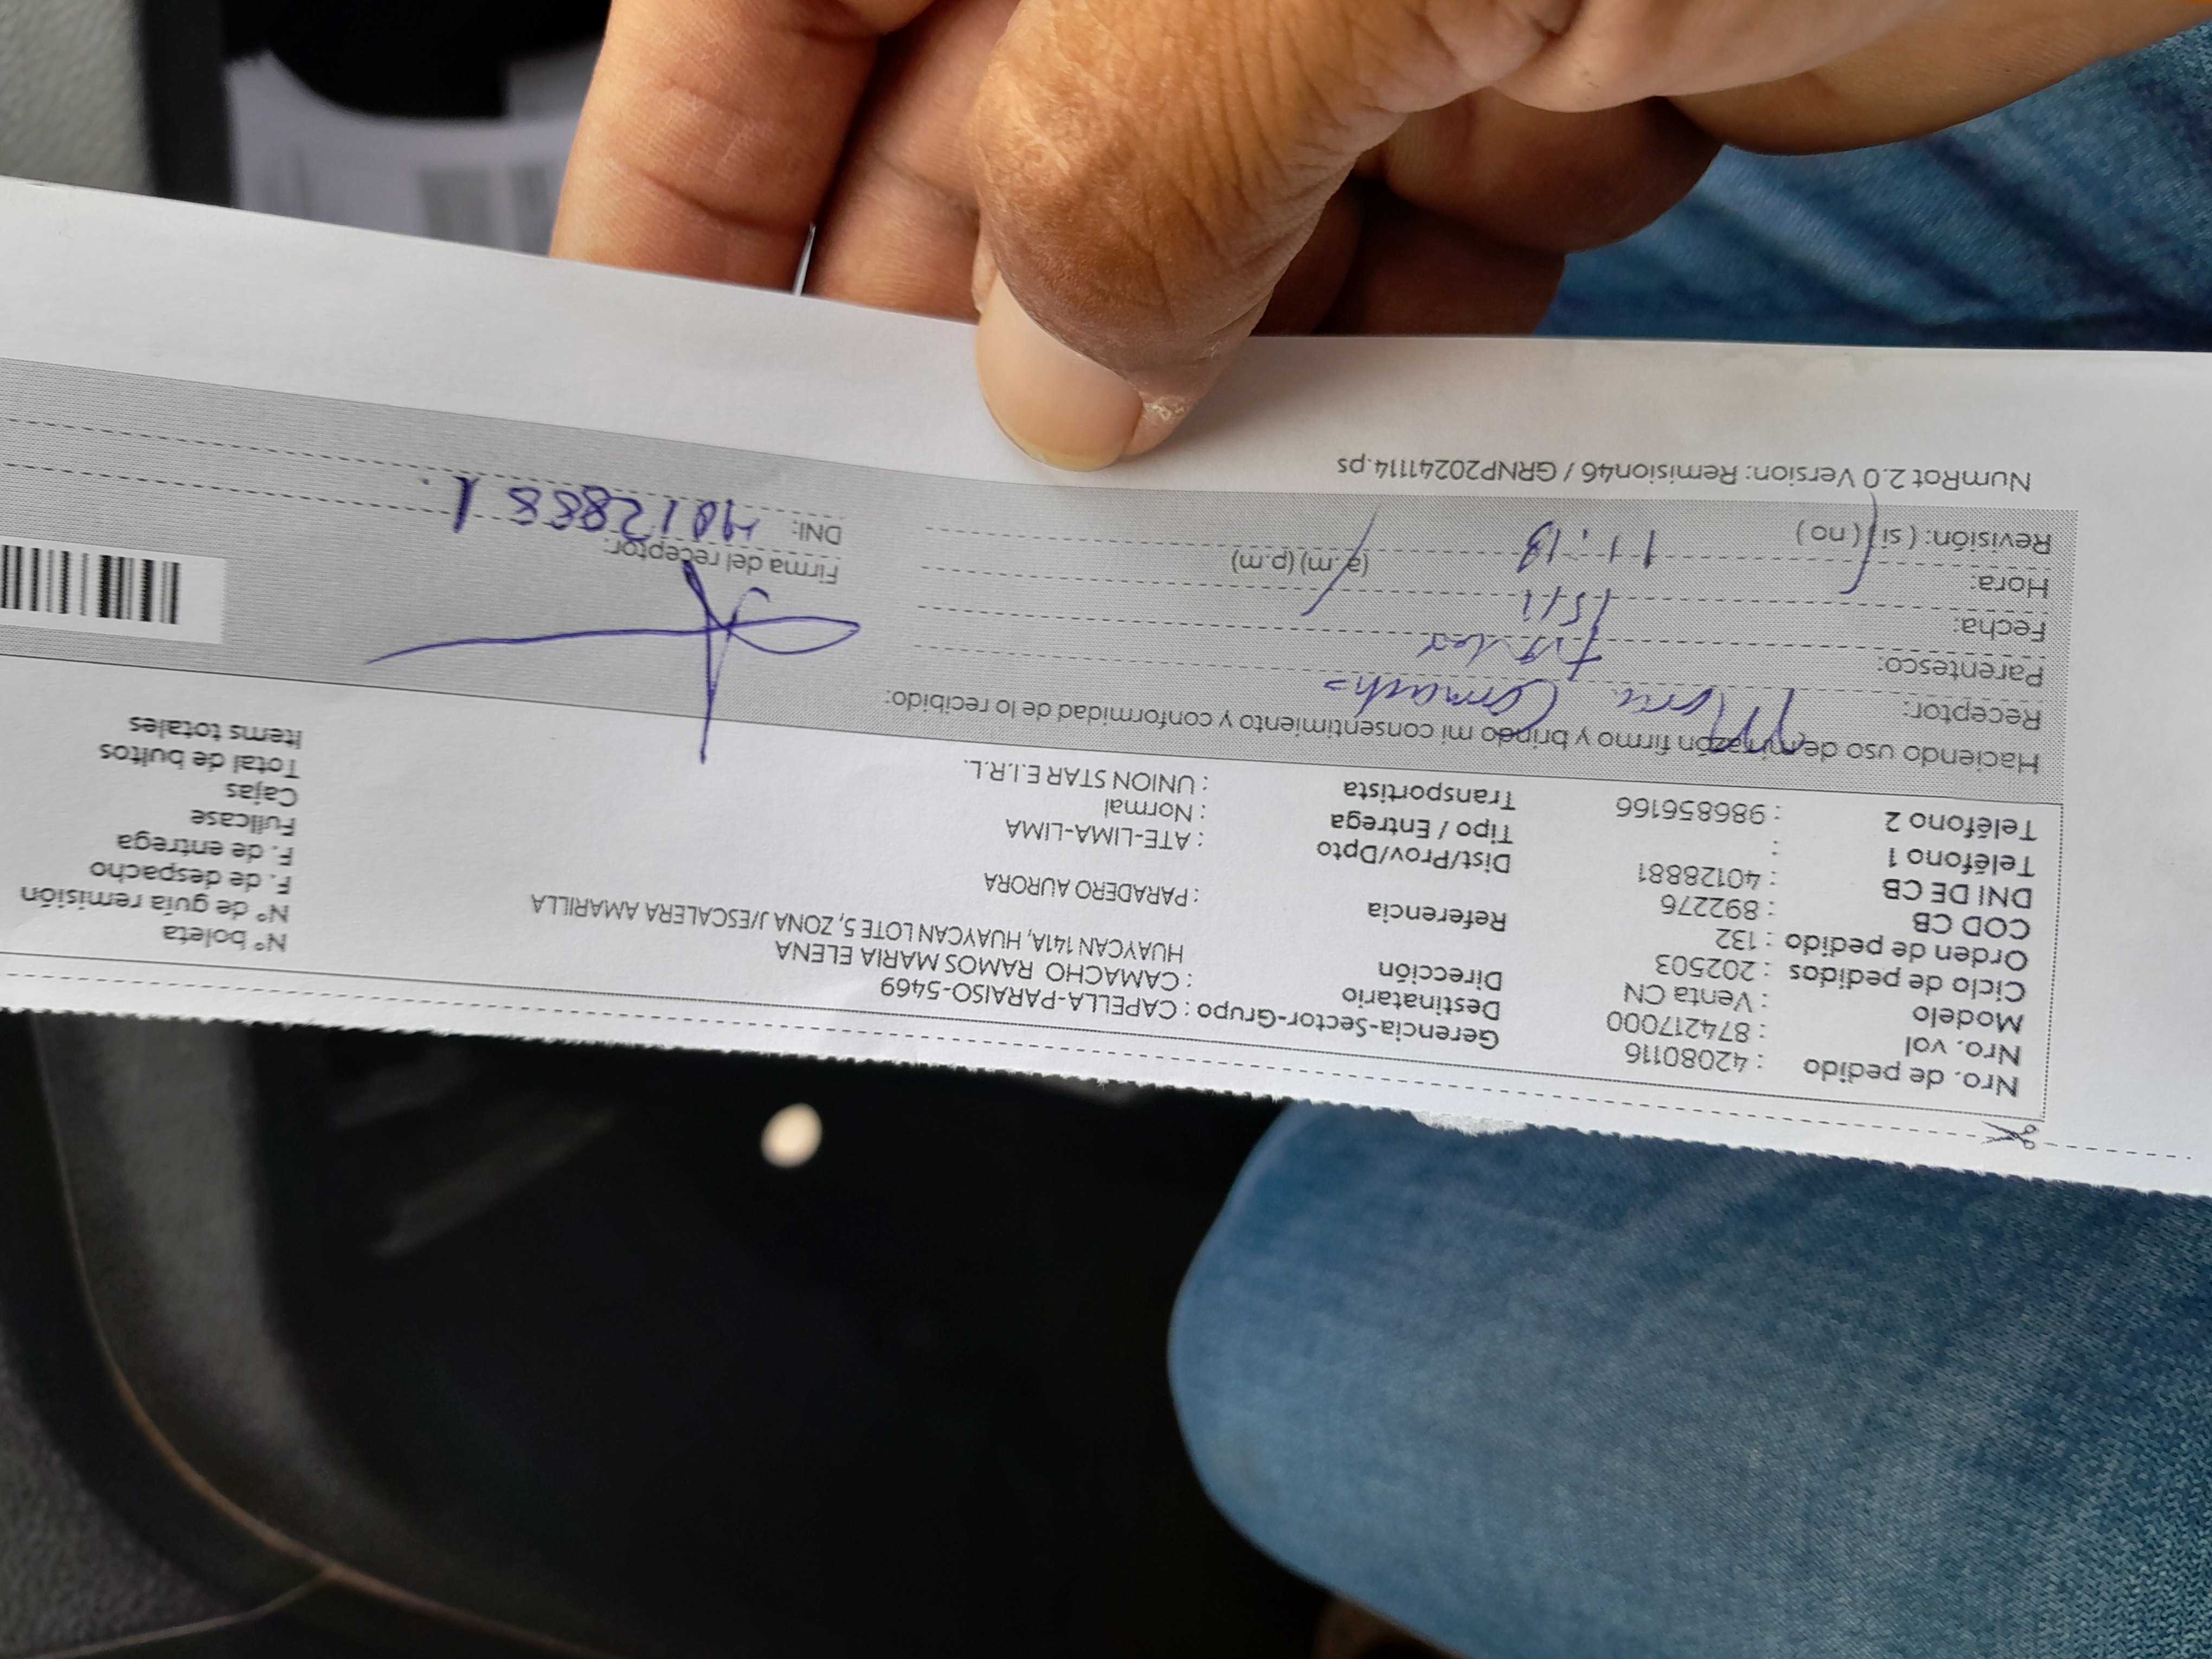 Nro. de pedido : 42080116
Nro. vol : 874217000
Modelo : Venta CN
Ciclo de pedidos : 202503
Orden de pedido : 132
COD CB : 892276
DNI DE CB : 40128881
Teléfono 1 :
Teléfono 2 : 986856166
Gerencia-Sector-Grupo : CAPELLA-PARAISO-5469
Destinatario : CAMACHO RAMOS MARIA ELENA
Dirección HUAYCAN 141A, HUAYCAN LOTE 5, ZONA J/ESCALERA AMARILLA
Referencia : PARADERO AURORA
Dist/Prov/Dpto : ATE-LIMA-LIMA
Tipo / Entrega : Normal
Transportista : UNION STAR E.I.R.L.
N° boleta
N° de guía remisión
F. de despacho
F. de entrega
Fullcase
Cajas
Total de bultos
Items totales
Haciendo uso de mi razón firmo y brindo mi consentimiento y conformidad de lo recibido:
Receptor: Maria Camacho
Parentesco:
Fecha: 15/11
Hora: 11:18 (a.m) (p.m)
Revisión: ( si ) ( no )
Firma del receptor:
DNI: 40128881
NumRot 2.0 Version: Remision46 / GRNP20241114.ps